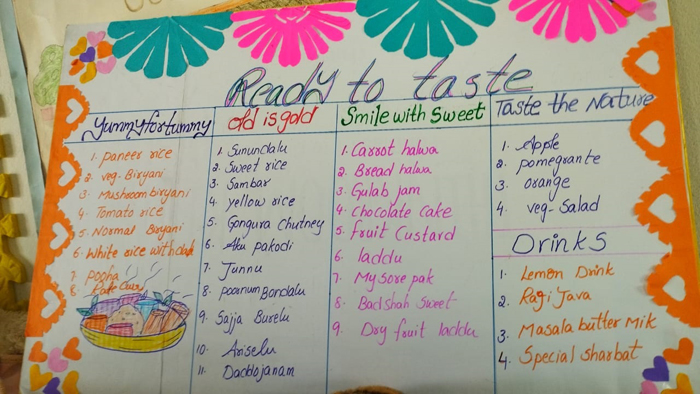 Ready to taste
Yummy for tummy
1. Paneer rice
2. Veg-Biryani
3. Mushroom biryani
4. Tomato rice
5. Normal Biryani
6. White rice with dal
7. Pooha
8.
old is gold
1. Sunundalu
2. Sweet rice
3. Sambar
4. yellow rice
5. Gongura Chutney
6. Aku pakodi
7. Junnu
8. poornum Bondalu
9. Sajja Burelu
10. Ariselu
11. Daddojanam
Smile with Sweet
1. Carrot halwa
2. Bread halwa
3. Gulab jam
4. Chocolate Cake
5. Fruit Custard
6. laddu
7. Mysore pak
8. Badshah Sweet
9. Dry fruit laddu
Taste the Nature
1. Apple
2. pomegrante
3. orange
4. veg-Salad
Drinks
1. Lemon Drink
2. Ragi Java
3. Masala butter Mik
4. Special sharbat